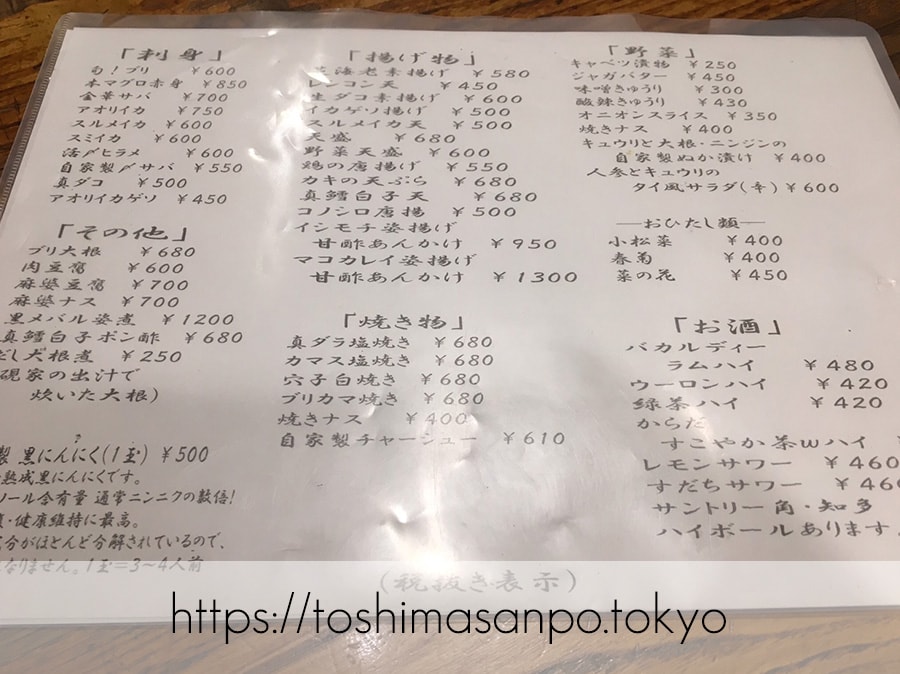 「刺身」
旬!ブリ ￥600
本マグロ赤身 ￥850
金華サバ ￥700
アオリイカ ￥750
スルメイカ ￥600
スミイカ ￥600
活〆ヒラメ ￥600
自家製〆サバ ￥550
真ダコ ￥500
アオリイカゲソ ￥450
「その他」
ブリ大根 ￥680
肉豆腐 ￥600
麻婆豆腐 ￥700
麻婆ナス ￥700
黒メバル姿煮 ￥1200
真鱈白子ポン酢 ￥680
だし大根煮 ￥250
硯家の出汁で
炊いた大根)
製 黒にんにく(1玉) ￥500
熟成黒にんにくです。
ノール含有量 通常ニンニクの数倍!
・健康維持に最高。
分がほとんど分解されているので、
なりません。1玉=3〜4人前
「揚げ物」
海老素揚げ ￥580
レンコン天 ￥450
生ダコ素揚げ ￥600
イカゲソ揚げ ￥500
スルメイカ天 ￥500
天盛 ￥680
野菜天盛 ￥600
鶏の唐揚げ ￥550
カキの天ぷら ￥680
真鱈白子天 ￥680
コノシロ唐揚 ￥500
イシモチ姿揚げ
甘酢あんかけ ￥950
マコカレイ姿揚げ
甘酢あんかけ ￥1300
「焼き物」
真ダラ塩焼き ￥680
カマス塩焼き ￥680
穴子白焼き ￥680
ブリカマ焼き ￥680
焼きナス ￥400
自家製チャーシュー ￥610
「野菜」
キャベツ漬物 ￥250
ジャガバター ￥450
味噌きゅうり ￥300
酸辣きゅうり ￥430
オニオンスライス ￥350
焼きナス ￥400
キュウリと大根・ニンジンの
自家製ぬか漬け ￥400
人参とキュウリの
タイ風サラダ(辛) ￥600
―おひたし類―
小松菜 ￥400
春菊 ￥400
菜の花 ￥450
「お酒」
バカルディー
ラムハイ ￥480
ウーロンハイ ￥420
緑茶ハイ ￥420
からだ
すこやか茶Wハイ ￥
レモンサワー ￥460
すだちサワー ￥460
サントリー角・知多
ハイボールあります。
(税抜き表示)
https://toshimasanpo.tokyo